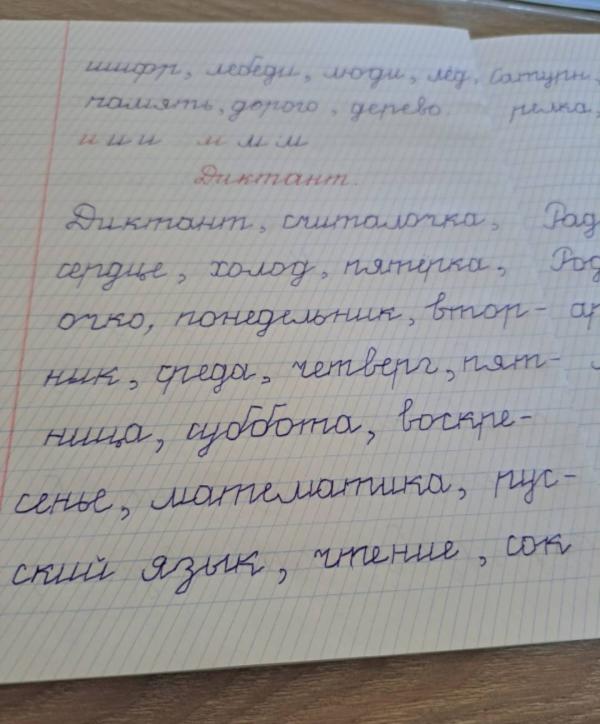 шифр, лебеди, люди, лёд, Сатурн,
память, дорого, дерево.
и и и м м м
Диктант.
Диктант, считалочка,
сердце, холод, пятерка,
очко, понедельник, втор-
ник, среда, четверг, пят-
ница, суббота, воскре-
сенье, математика, рус-
ский язык, чтение, сок